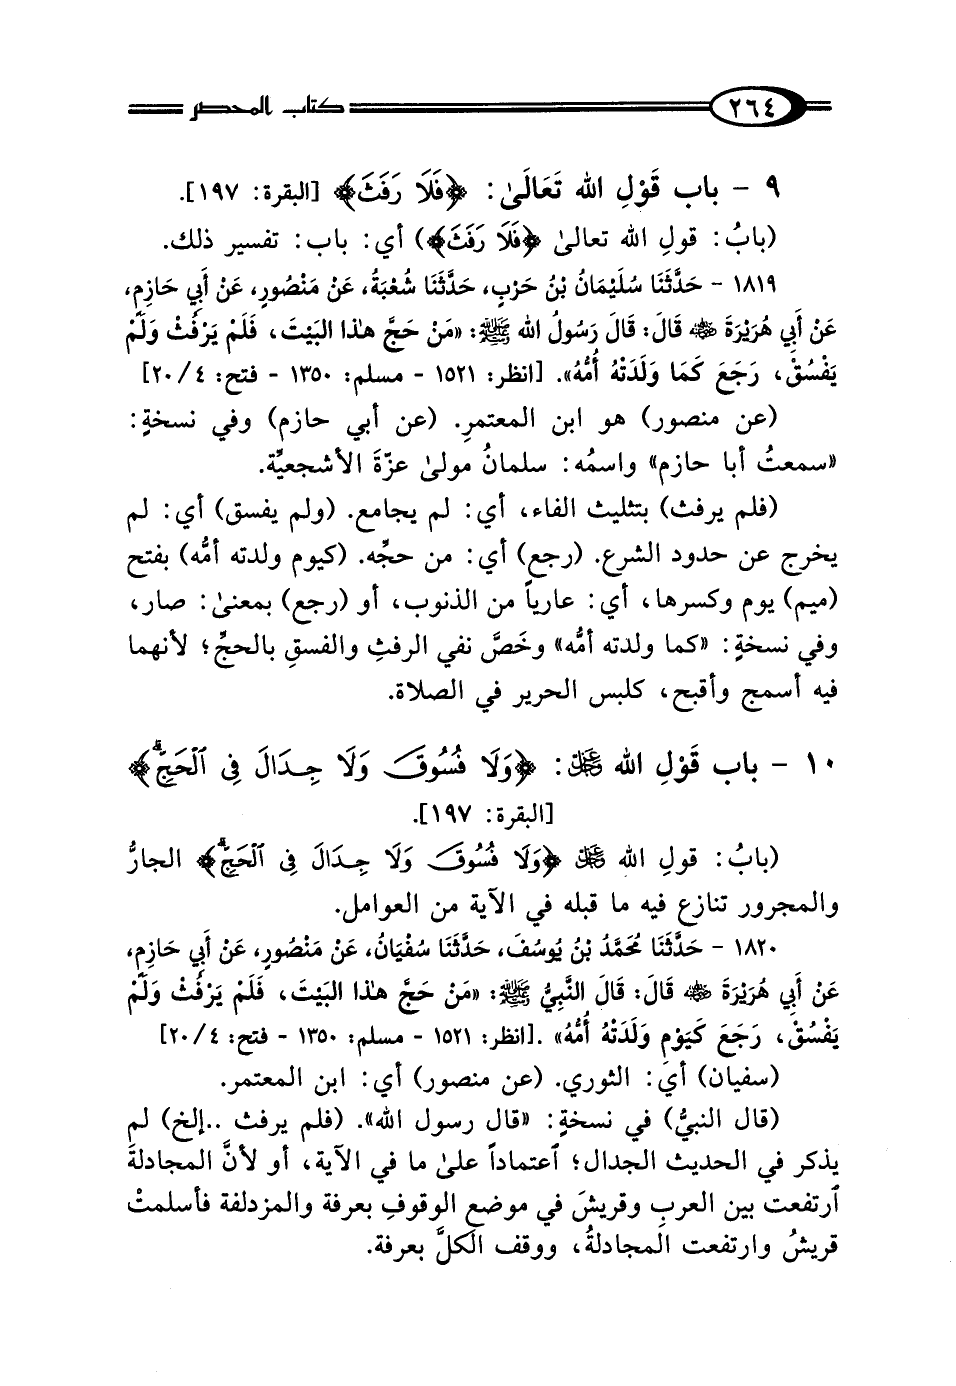 ٢٦٤ كتاب المحصر
٩ - باب قَوْلِ الله تَعَالَىٰ: ﴿فَلَا رَفَثَ﴾ [البقرة: ١٩٧].
(بابُ: قولِ الله تعالىٰ ﴿فَلَا رَفَثَ﴾) أي: باب: تفسير ذلك.
١٨١٩ - حَدَّثَنَا سُلَيْمَانُ بْنُ حَرْبٍ، حَدَّثَنَا شُعْبَةُ، عَنْ مَنْصُورٍ، عَنْ أَبِي حَازِمٍ،
عَنْ أَبِي هُرَيْرَةَ ﵁ قَالَ: قَالَ رَسُولُ الله ﷺ: «مَنْ حَجَّ هٰذا البَيْتَ، فَلَمْ يَرْفُثْ وَلَمْ
يَفْسُقْ، رَجَعَ كَمَا وَلَدَتْهُ أُمُّهُ». [انظر: ١٥٢١ - مسلم: ١٣٥٠ - فتح: ٢٠/٤]
(عن منصور) هو ابن المعتمرِ. (عن أبي حازم) وفي نسخةٍ:
«سمعتُ أبا حازم» واسمُه: سلمانُ مولىٰ عزّةَ الأشجعيَّة.
(فلم يرفث) بتثليث الفاء، أي: لم يجامع. (ولم يفسق) أي: لم
يخرج عن حدود الشرع. (رجع) أي: من حجِّه. (كيوم ولدته أمُّه) بفتح
(ميم) يوم وكسرها، أي: عارياً من الذنوب، أو (رجع) بمعنىٰ: صار،
وفي نسخةٍ: «كما ولدته أمُّه» وخَصَّ نفي الرفثِ والفسقِ بالحجِّ؛ لأنهما
فيه أسمج وأقبح، كلبس الحرير في الصلاة.
١٠ - باب قَوْلِ الله ﷿: ﴿وَلَا فُسُوقَ وَلَا جِدَالَ فِى ٱلْحَجِّۗ﴾
[البقرة: ١٩٧].
(بابُ: قولِ الله ﷿ ﴿وَلَا فُسُوقَ وَلَا جِدَالَ فِى ٱلْحَجِّۗ﴾ الجارُّ
والمجرور تنازع فيه ما قبله في الآية من العوامل.
١٨٢٠ - حَدَّثَنَا مُحَمَّدُ بْنُ يُوسُفَ، حَدَّثَنَا سُفْيَانُ، عَنْ مَنْصُورٍ، عَنْ أَبِي حَازِمٍ،
عَنْ أَبِي هُرَيْرَةَ ﵁ قَالَ: قَالَ النَّبِيُّ ﷺ: «مَنْ حَجَّ هٰذا البَيْتَ، فَلَمْ يَرْفُثْ وَلَمْ
يَفْسُقْ، رَجَعَ كَيَوْمِ وَلَدَتْهُ أُمُّهُ» .[انظر: ١٥٢١ - مسلم: ١٣٥٠ - فتح: ٢٠/٤]
(سفيان) أي: الثوري. (عن منصور) أي: ابن المعتمر.
(قال النبيُّ) في نسخةٍ: «قال رسول الله». (فلم يرفث ..إلخ) لم
يذكر في الحديث الجدال؛ ٱعتماداً علىٰ ما في الآية، أو لأنَّ المجادلةَ
ٱرتفعت بين العربِ وقريشَ في موضعِ الوقوفِ بعرفة والمزدلفة فأسلمتْ
قريشُ وارتفعت المجادلةُ، ووقف الكلَّ بعرفة.